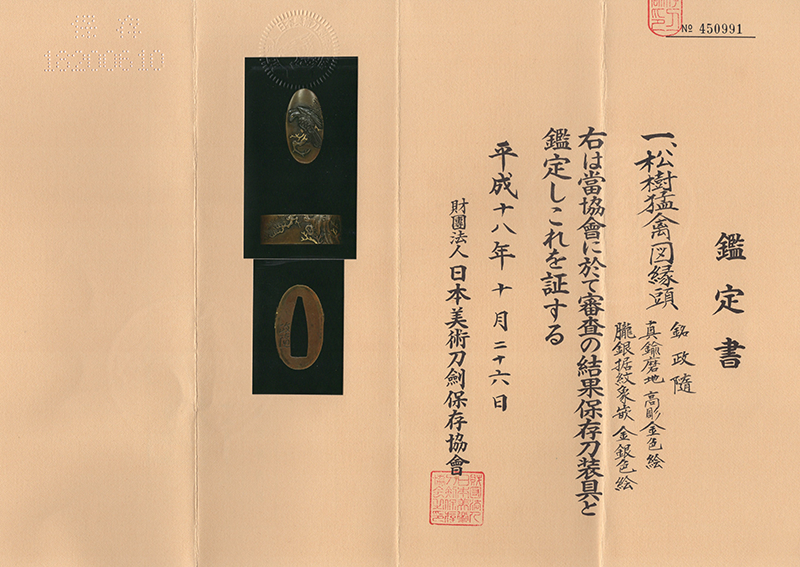 № 450991
鑑定書
一、松樹猛禽図縁頭
銘 政隨
真鍮磨地 高彫金色絵
朧銀据紋象嵌 金銀色絵
右は當協會に於て審査の結果保存刀装具と
鑑定しこれを証する
平成十八年十月二十六日
財團法人 日本美術刀劍保存協會
保存
18200610